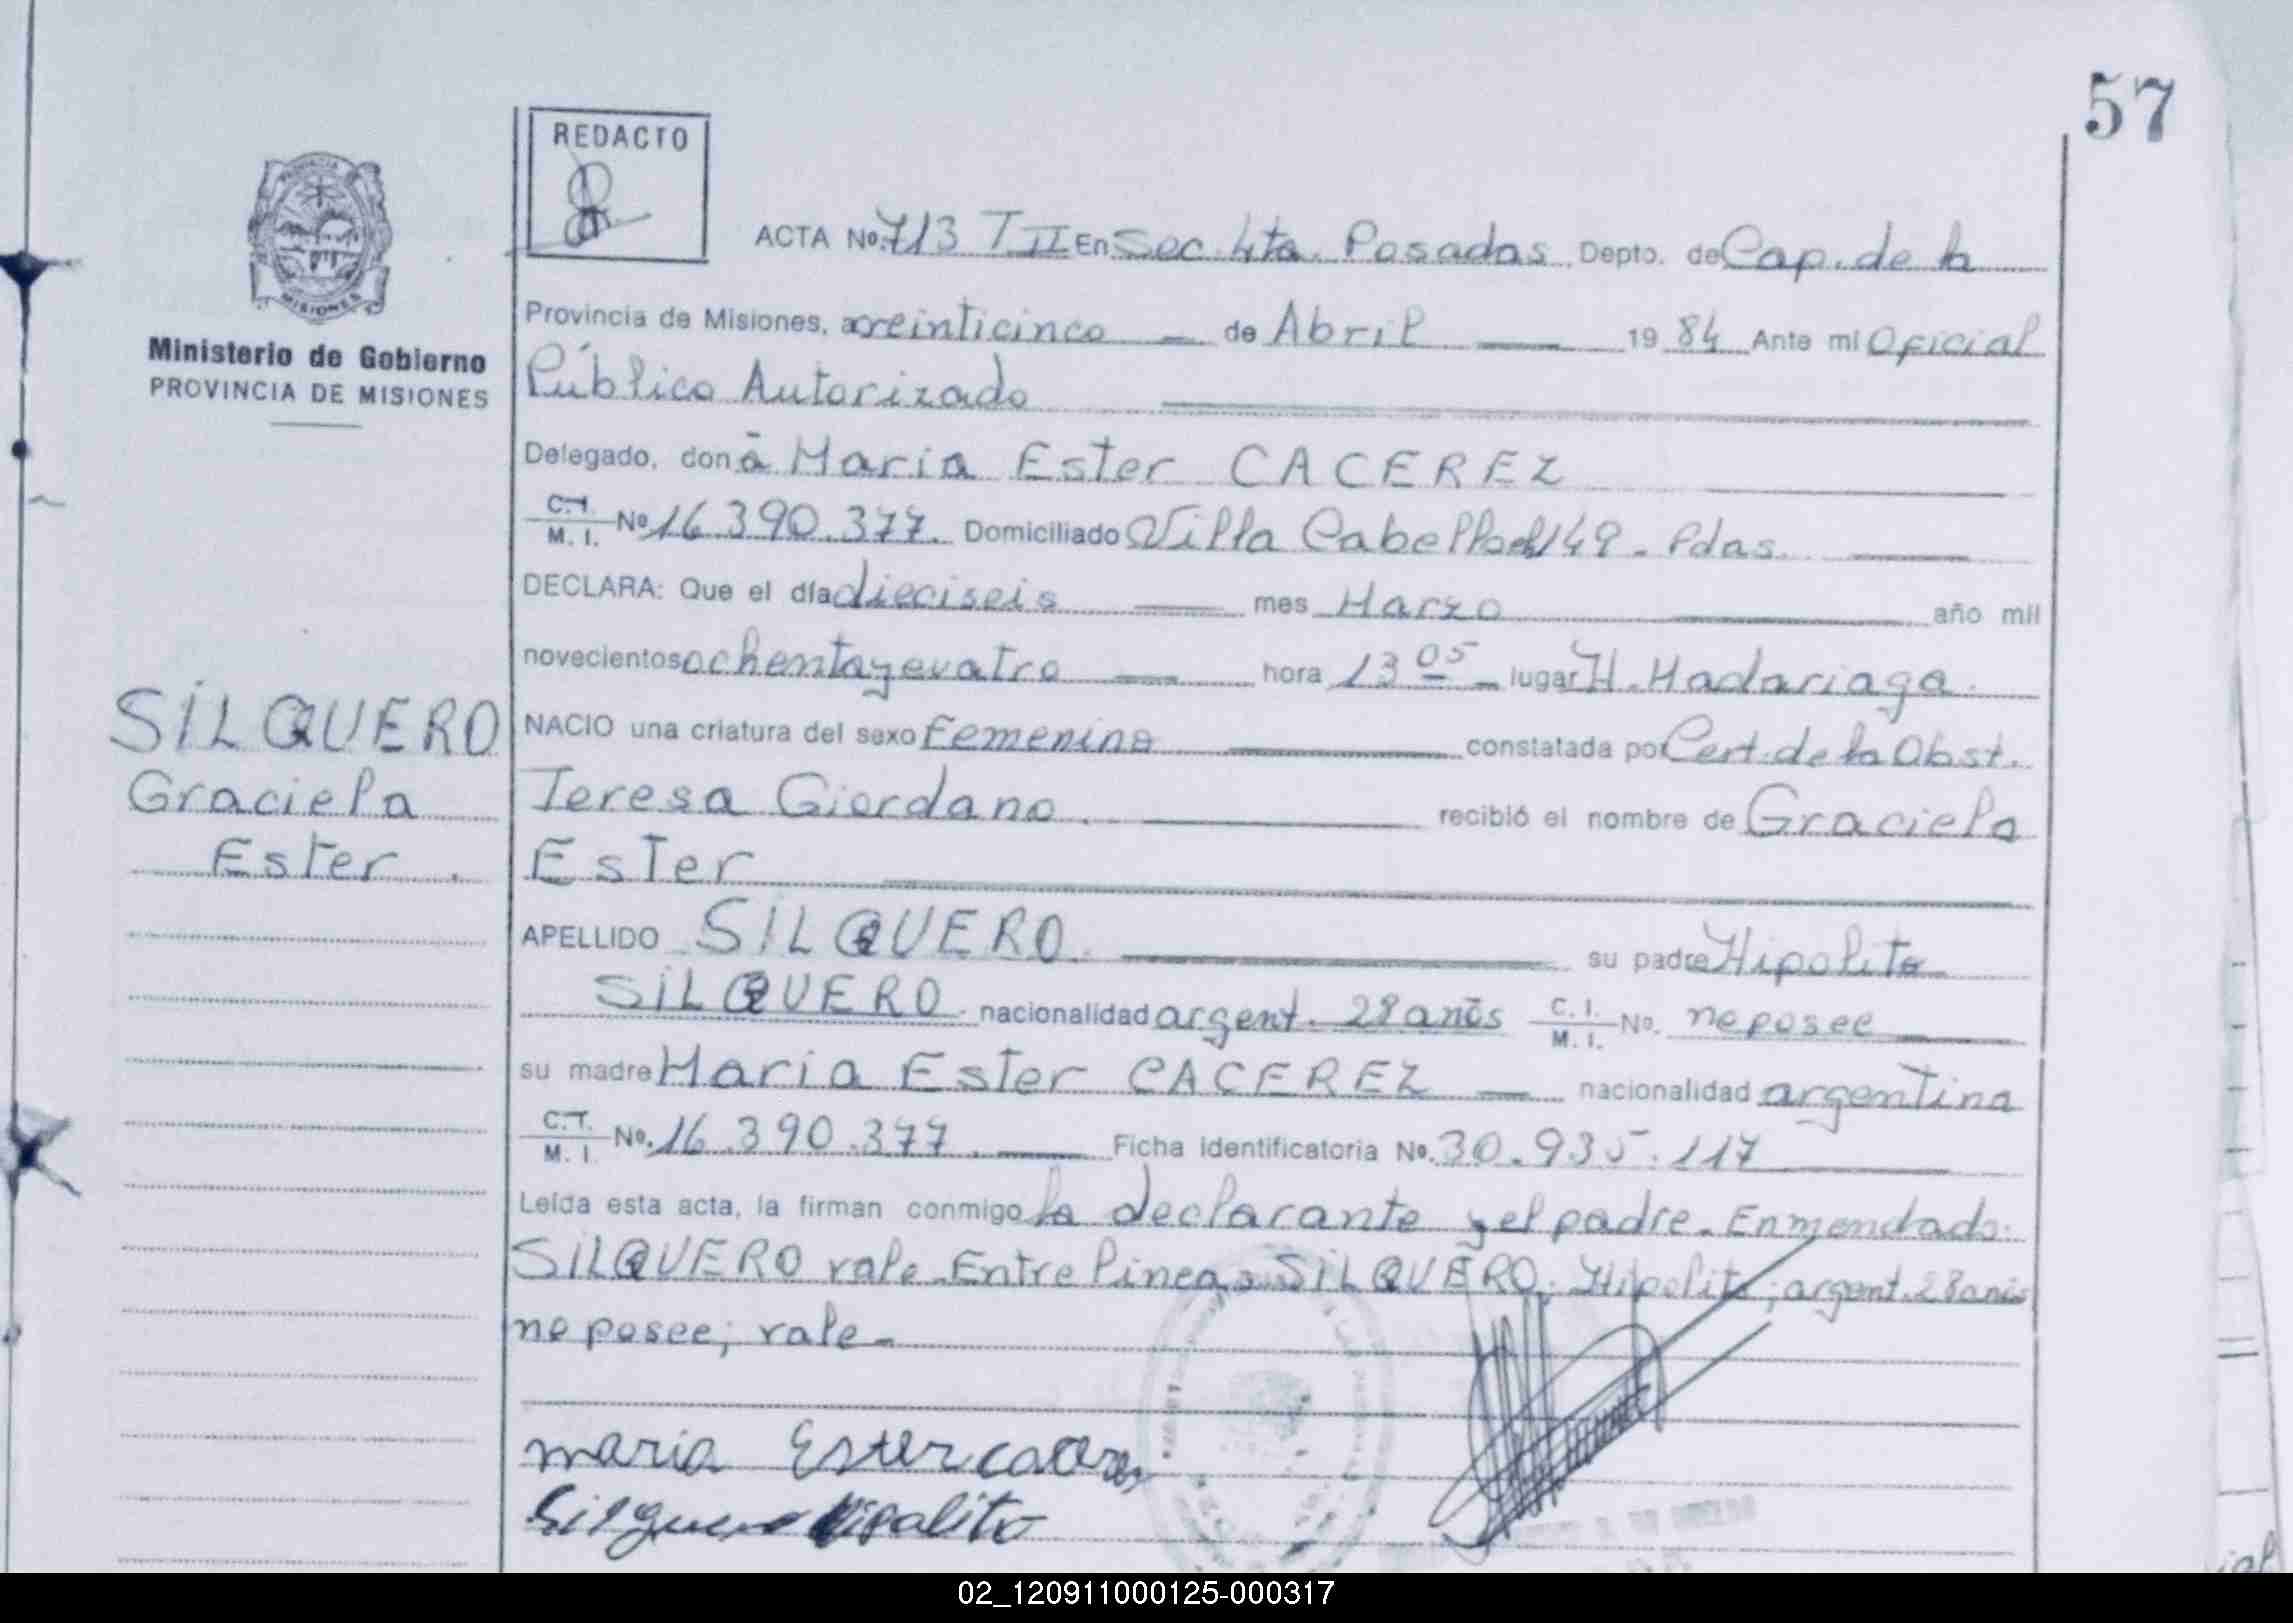 57
REDACTO
ACTA No. 713 T II En Sec. 4ta. Posadas Depto. de Cap. de la
Provincia de Misiones, a veinticinco — de Abril — 19 84 Ante mi Oficial
Ministerio de Gobierno
PROVINCIA DE MISIONES
Público Autorizado
Delegado, donã Maria Ester CACEREZ
C.I. M. I. No 16.390.377. Domiciliado Villa Cabello 149 - Pdas.
DECLARA: Que el día dieciseis — mes Marzo — año mil
novecientos ochentaycuatro — hora 13 05 - lugar H. Madariaga.
SILQUERO
Graciela
Ester.
NACIO una criatura del sexo Femenino — constatada por Cert. de la Obst.
Teresa Giordano. — recibió el nombre de Graciela
Ester
APELLIDO SILQUERO. — su padre Hipolito
SILQUERO. nacionalidad argent. 28 anõs C. I. M. I. No. no posee
su madre Maria Ester CACEREZ — nacionalidad argentina
C.I. M. I No. 16.390.377. — Ficha identificatoria No. 30.935.117
Leída esta acta, la firman conmigo la declarante y el padre. Enmendado:
SILQUERO vale. Entre lineas SILQUERO; Hipolito; argent. 28 anõs
no posee; vale-
PROVINCIA
MISIONES
maria Ester caceres
Silguero Hipolito
02_120911000125-000317